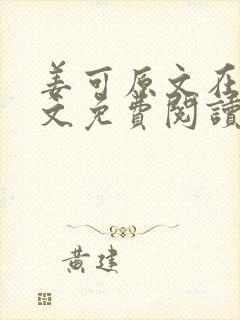 姜可原文在
文免費閱讀
黃建